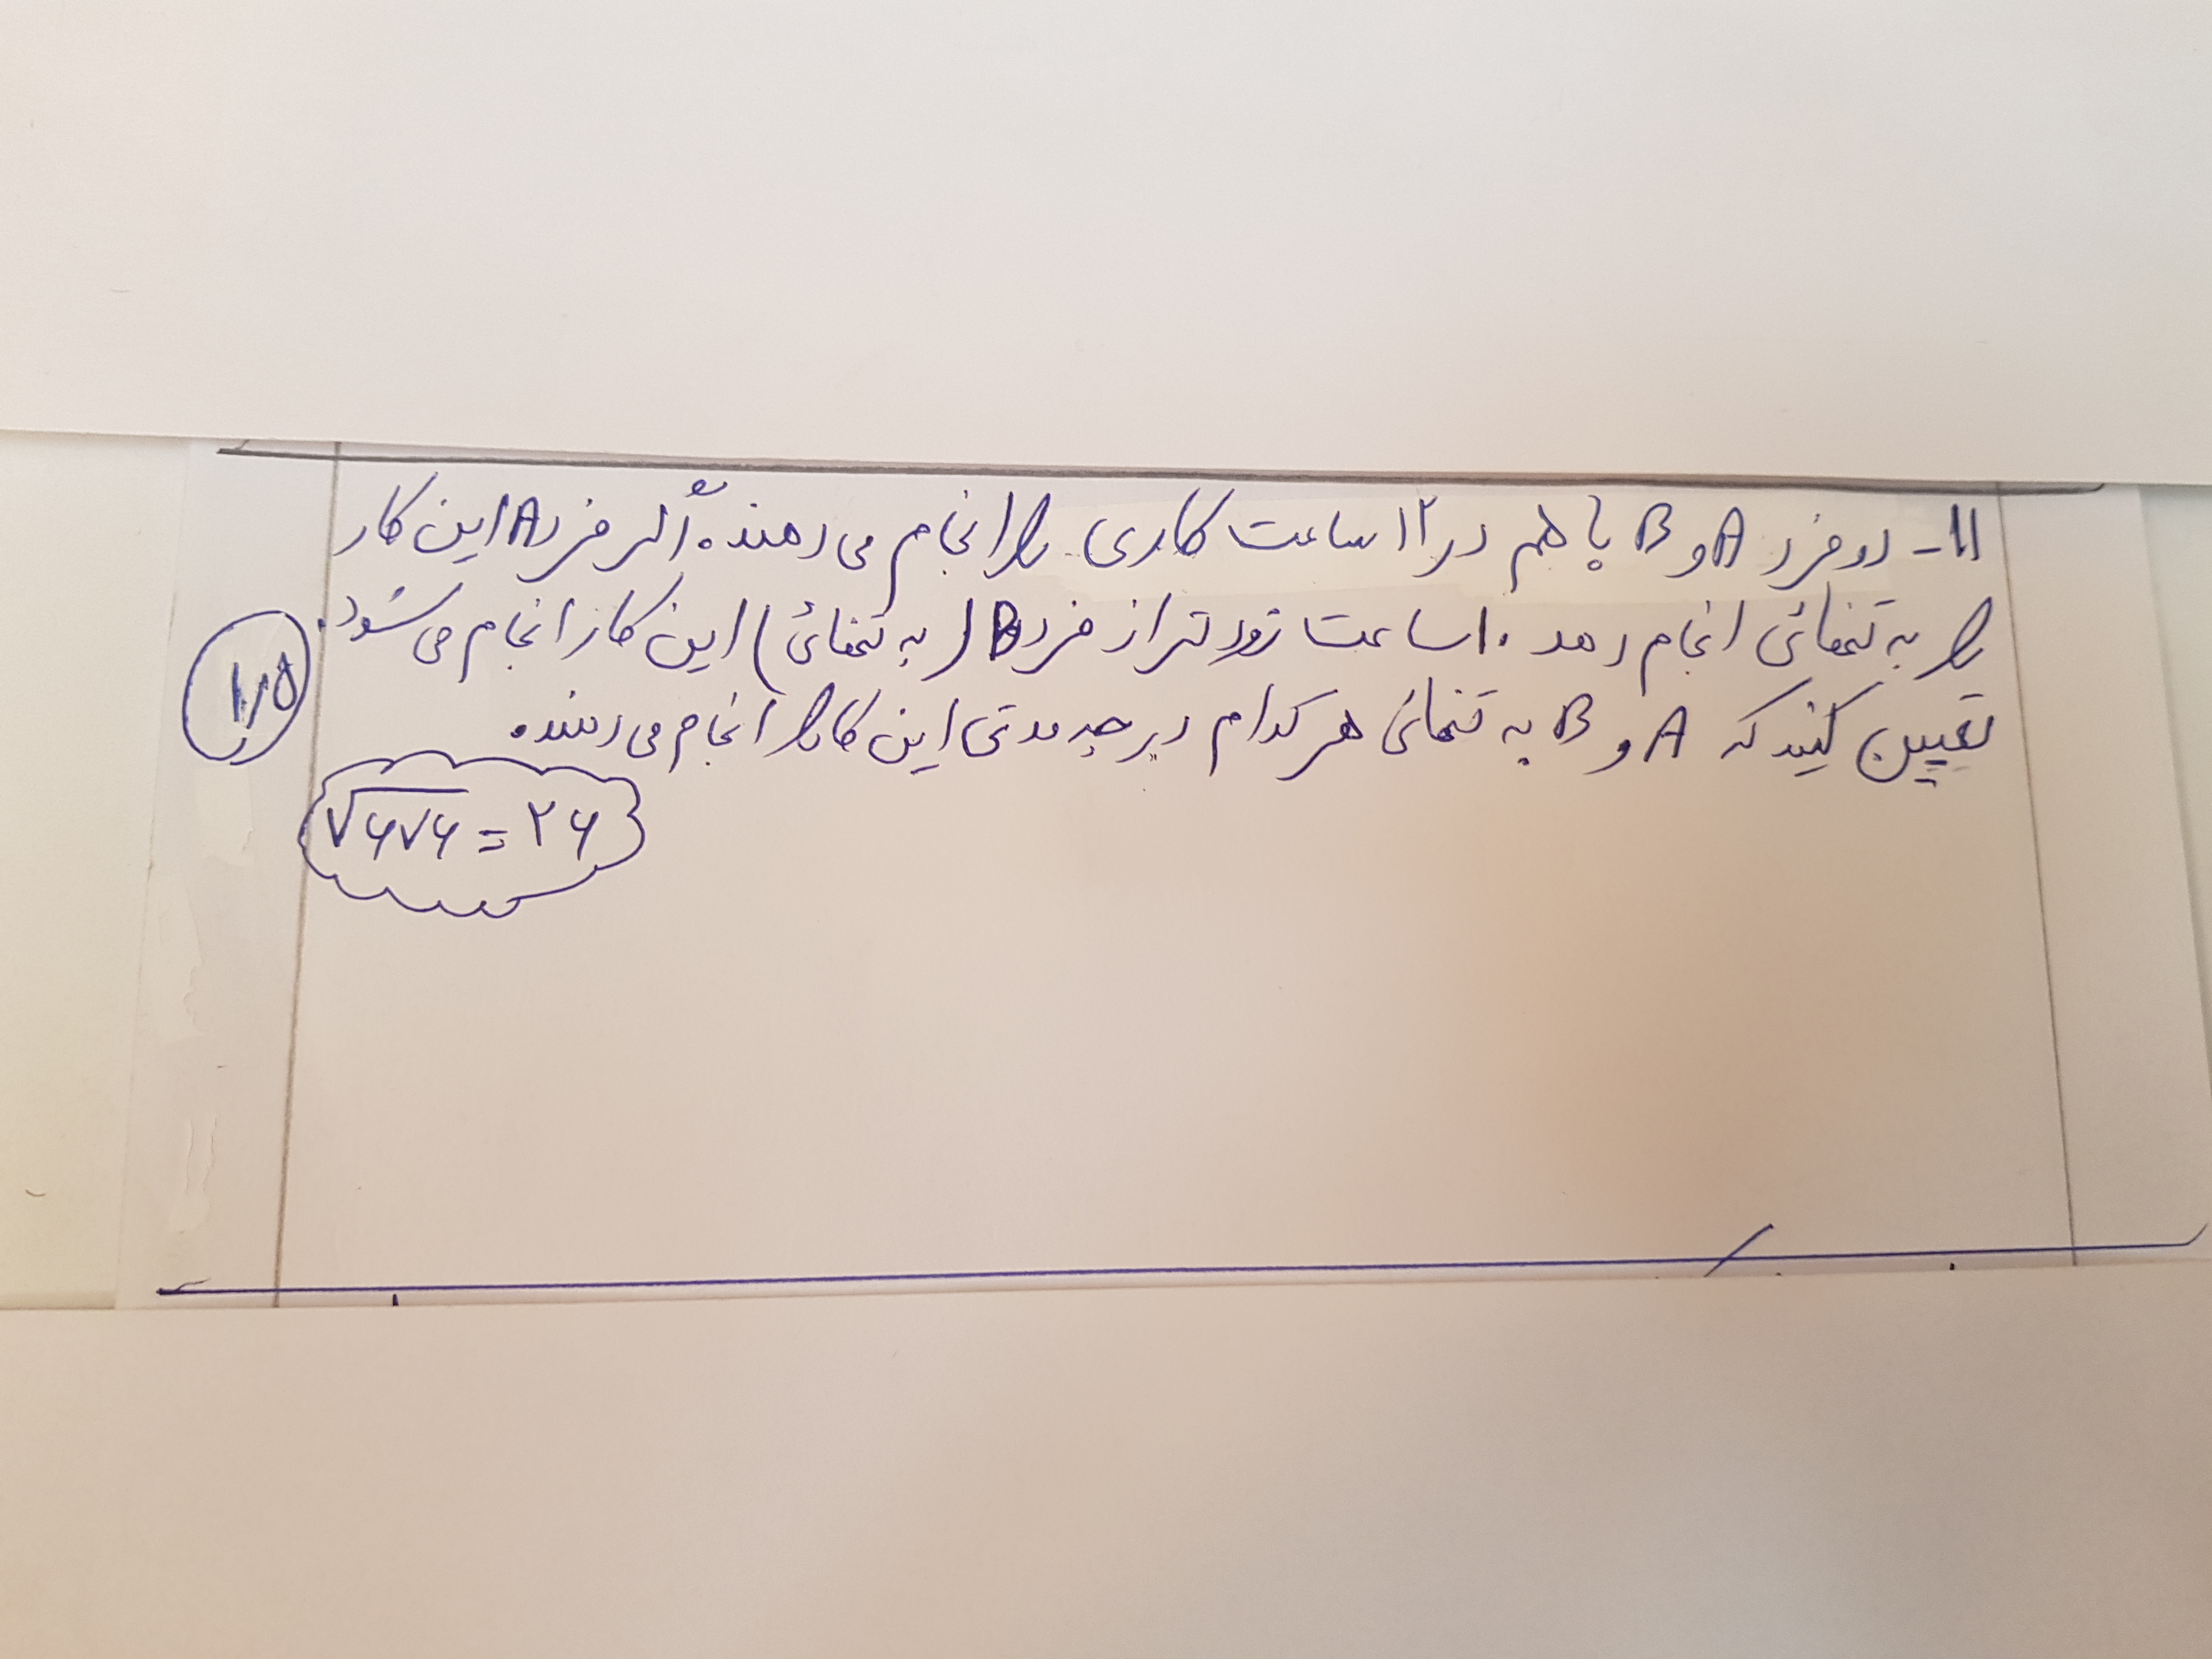 ۱۱- دو فرد A و B با هم در ۱۲ ساعت کاری را انجام می دهند. اگر فرد A این کار
را به تنهائی انجام دهد ۱۰ ساعت زودتر از فرد B (به تنهائی) این کار انجام می شود.
۱٫۵
تعیین کنید که A و B به تنهائی هر کدام در چه مدتی این کار را انجام می دهند.
√۶۷۶ = ۲۶